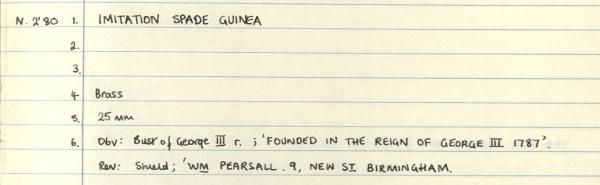 N. 2'80 1. IMITATION SPADE GUINEA
2.
3.
4 Brass
5. 25 mm
6. Obv: Bust of George III r. ; 'FOUNDED IN THE REIGN OF GEORGE III 1787'.
Rev: Shield; 'WM PEARSALL. 9, NEW ST BIRMINGHAM.